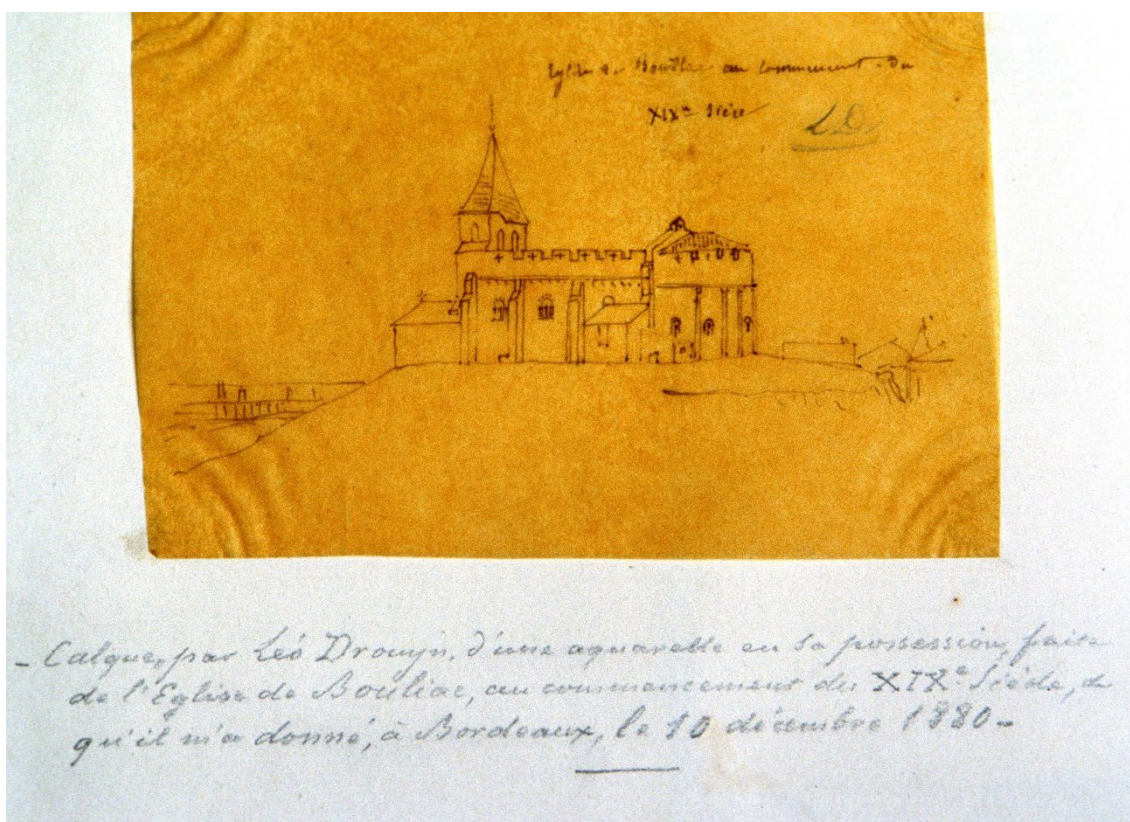 Eglise de Bouillac au commencement du
XIXe Siècle
L.D.
- Calque, par Léo Drouyn, d'une aquarelle en sa possession, faite
de l'Eglise de Bouliac, au commencement du XIXe Siècle, &
qu'il m'a donné, à Bordeaux, le 10 décembre 1880 -